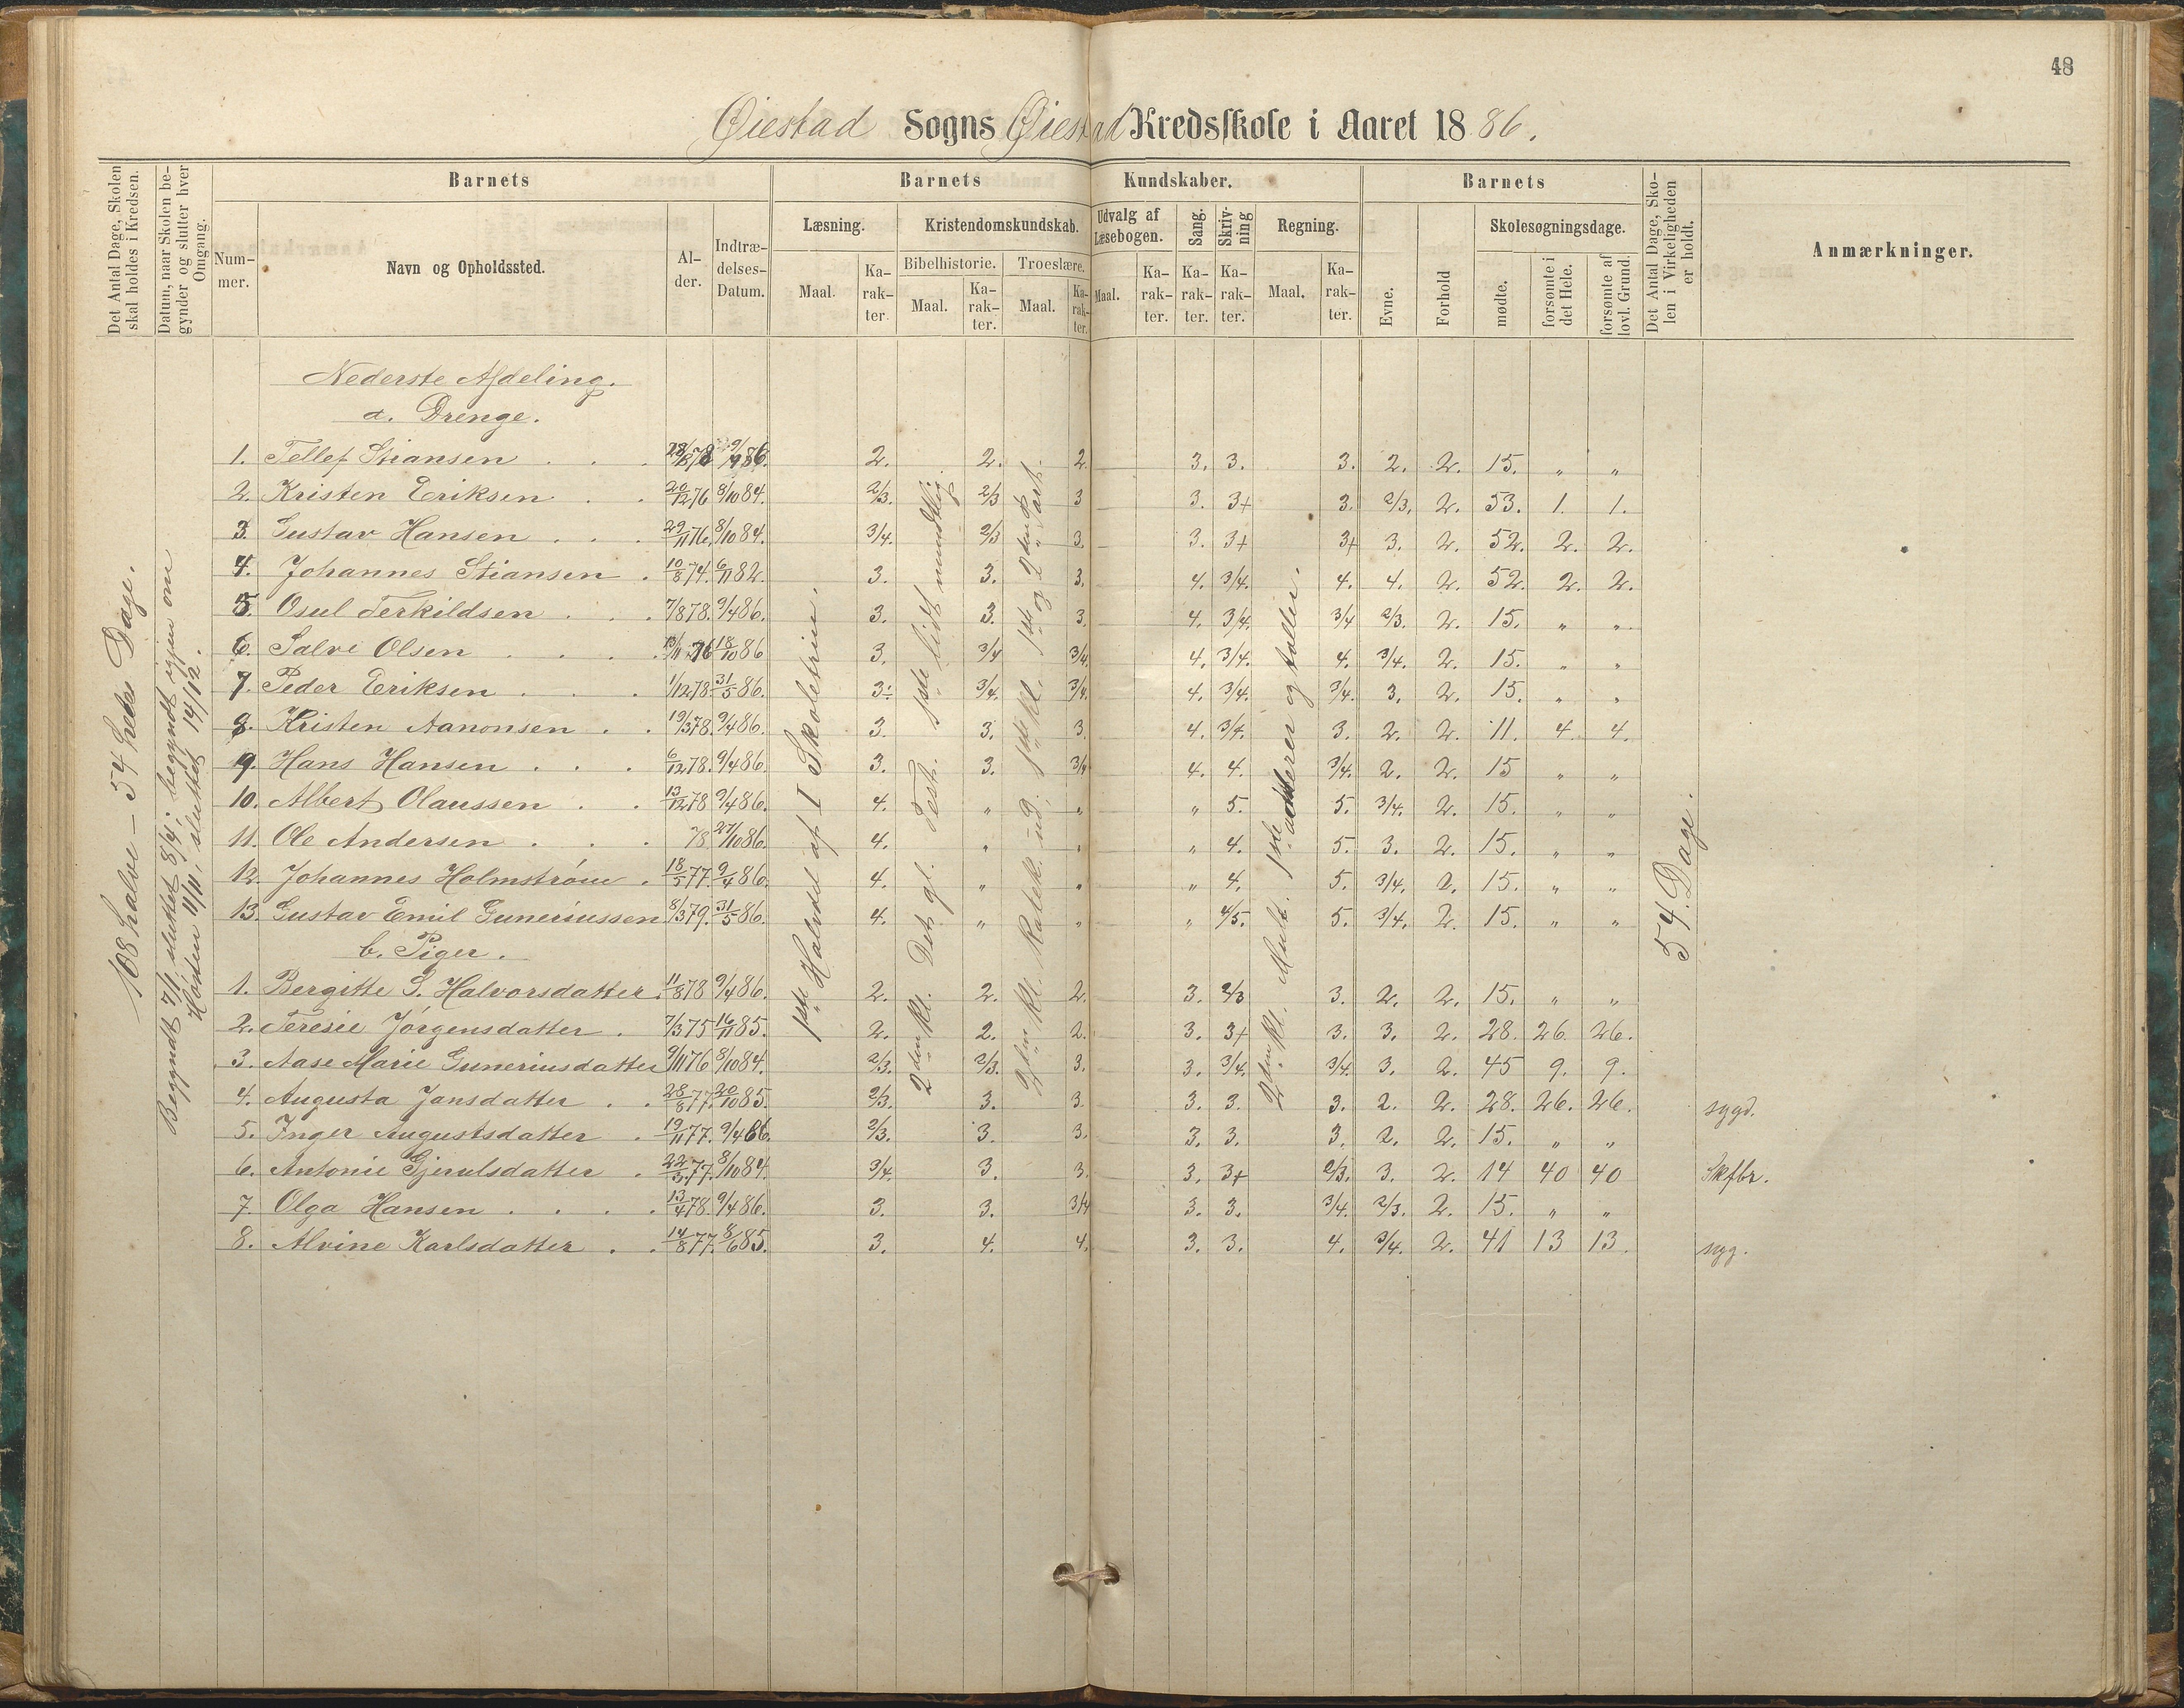 48
Øiestad Sogns Øiestad Kredsskole i Aaret 1886.
Det Antal Dage, Skolen skal holdes i Kredsen.
Datum, naar Skolen begynder og slutter hver Omgang.
Barnets
Nummer.
Navn og Opholdssted.
Alder.
Indtrædelses-Datum.
Barnets Kundskaber.
Læsning.
Maal.
Karakter.
Kristendomskundskab.
Bibelhistorie.
Maal.
Karakter.
Troeslære.
Maal.
Karakter.
Udvalg af Læsebogen.
Maal.
Karakter.
Sang.
Karakter.
Skrivning
Karakter.
Regning.
Maal.
Karakter.
Barnets
Evne.
Forhold
Skolesøgningsdage.
mødte.
forsømte i det Hele.
forsømte af lovl. Grund.
Det Antal Dage, Skolen i Virkeligheden er holdt.
Anmærkninger.
108 halve – 54 hele Dage.
Begyndt 7/1 sluttet 8/4; begyndt igjen om
Høsten 11/11, sluttet 14/12.
1ste Halvdel af I Skoletrin.
2den Kl. Det gl. Test. 1ste lidt mundtlig
2den Kl. Katek. ud; 1ste Kl. 1ste og 2den Part.
2den Kl. Mult. 1ste adderer og tæller.
54 Dage.
Nederste Afdeling.
a. Drenge.
1. Tellef Stiansen . . . 78 86. 2. 2. 2. 3. 3. 3. 2. 2. 15. " "
2. Kristen Eriksen . . 20/12 76 8/10 84. 2/3. 2/3 3 3. 3+ 3. 2/3. 2. 53. 1. 1.
3. Gustav Hansen . . . 29/11 76. 8/10 84. 3/4. 2/3 3. 3. 3+ 3+ 3. 2. 52. 2. 2.
4. Johannes Stiansen . 10/8 74. 6/11 82. 3. 3. 3. 4. 3/4. 4. 4. 2. 52. 2. 2.
5. Osul Terkildsen . . . 7/8 78. 9/4 86. 3. 3. 3. 4. 3/4. 3/4 2/3. 2. 15. " "
6. Salve Olsen . . . . 76 18/10 86 3. 3/4 3/4. 4. 3/4. 4. 3/4. 2. 15. " "
7. Peder Eriksen . . . 1/12 78. 31/5 86. 3. 3/4. 3/4. 4. 3/4. 3/4. 3. 2. 15. " "
8. Kristen Aanonsen . . 19/3 78. 9/4 86. 3. 3. 3. 4. 3/4. 3. 2. 2. 11. 4. 4.
9. Hans Hansen . . . 6/12 78. 9/4 86. 3. 3. 3/4 4. 4. 3/4. 2. 2. 15 " "
10. Albert Olaussen . . 13/12 78 9/4 86. 4. " " " 5. 5. 3/4. 2. 15. " "
11. Ole Andersen . . . 78 27/10 86. 4. " " " 4. 5. 3. 2. 15. " "
12. Johannes Holmstrøm . 18/5 77. 9/4 86. 4. " " " 4. 5. 3/4. 2. 15. " "
13. Gustav Emil Gunerinssen 8/3 79. 31/5 86. 4. " " " 4/5. 5. 3/4. 2. 15. " "
b. Piger.
1. Bergitte S. Halvorsdatter. 11/8 78 9/4 86. 2. 2. 2. 3. 2/3 3. 2. 2. 15. " "
2. Teresie Jørgensdatter . 7/3 75 16/11 85. 2. 2. 2. 3. 3+ 3. 3. 2. 28. 26. 26.
3. Aase Marie Guneriusdatter 9/11 76 8/10 84. 2/3. 2/3. 3. 3. 3/4. 3/4. 3. 2. 45 9. 9.
4. Augusta Jansdatter . . 28/8 77. 20/10 85. 2/3. 3. 3. 3. 3. 3. 2. 2. 28. 26. 26. sygd.
5. Inger Augustsdatter . 19/11 77. 9/4 86. 2/3. 3. 3. 3. 3. 3. 2. 2. 15. " "
6. Antonie Gjerulsdatter . 22/3 77. 8/10 84. 3/4. 3. 3. 3. 3+ 2/3. 3. 2. 14 40 40 Skfbr.
7. Olga Hansen . . . . 13/4 78. 9/4 86. 3. 3. 3/4 3. 3. 3/4. 2/3. 2. 15. " "
8. Alvine Karlsdatter . . 14/8 77. 8/6 85. 3. 4. 4. 3. 3. 4. 3/4. 2. 41 13 13. syg.